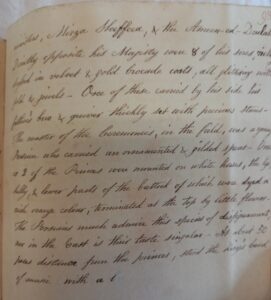 ministers, Mirza Sheffeea, & the Ameen-ed-Dowlah
Directly opposite his Majesty were 8 of his sons, in
in velvet & gold brocade coats, all glittering with
gold & jewels - One of these carried by his side his
father's bow & quiver thickly set with precious stones -
The master of the Ceremonies, in the field, was a young
Persian who carried an ornamented & gilded spear -
2 or 3 of the Princes were mounted on white horses, the legs
belly, & lower parts of the buttock of which were dyed a
orange colour, terminated at the top by little flowers
The Persians much admire this species of disfigurement
in the East is their taste singular - At about 30
yards distance from the princes, stood the king's band
of music, with a